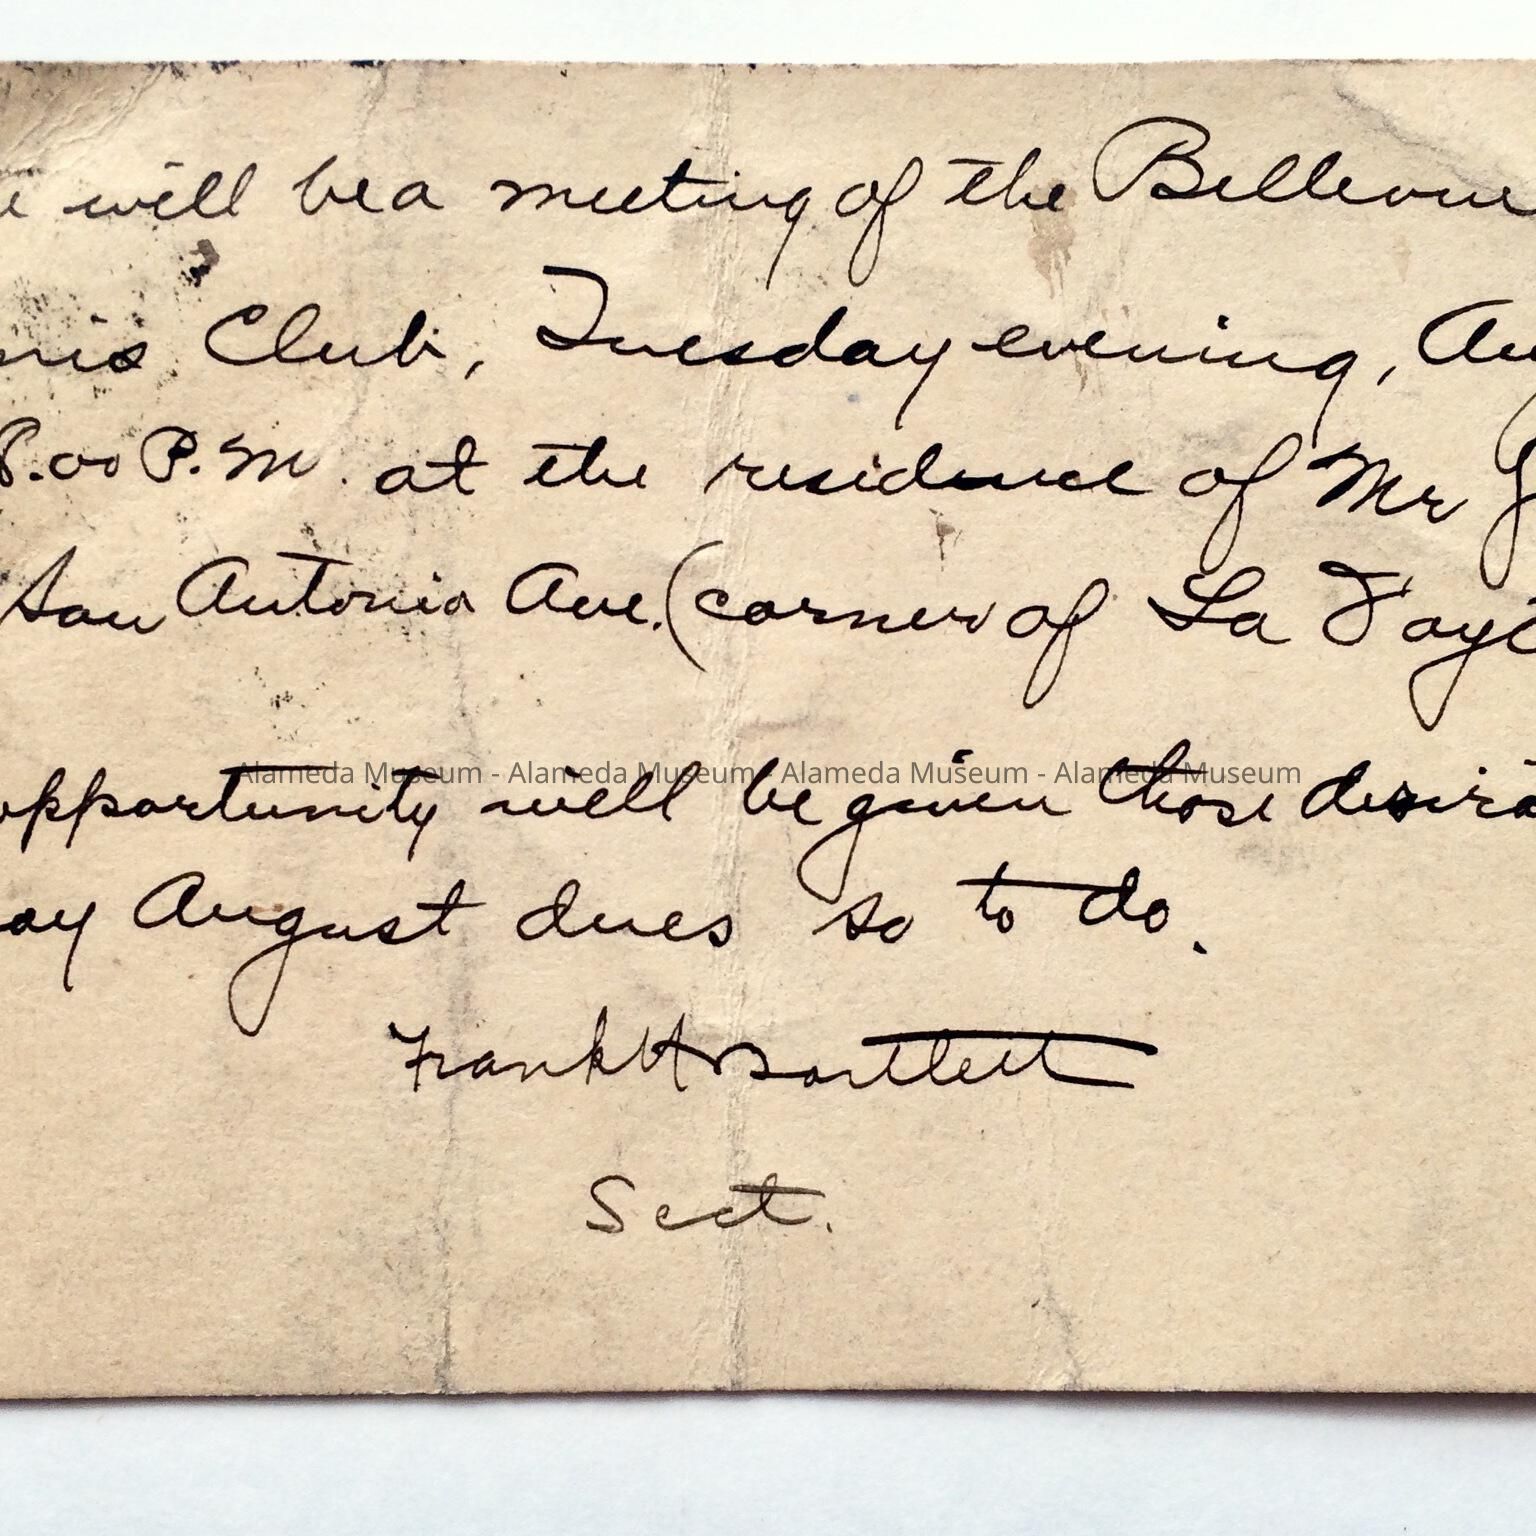 e will be a meeting of the Bellevue
nis Club, Tuesday evening, Au
8.00 P.M. at the residence of Mr
San Antonio Ave. (corner of La Faye
Alameda Museum - Alameda Museum - Alameda Museum - Alameda Museum
opportunity will be given those desirin
ay August dues so to do.
Frank H Bartlett
Sect.